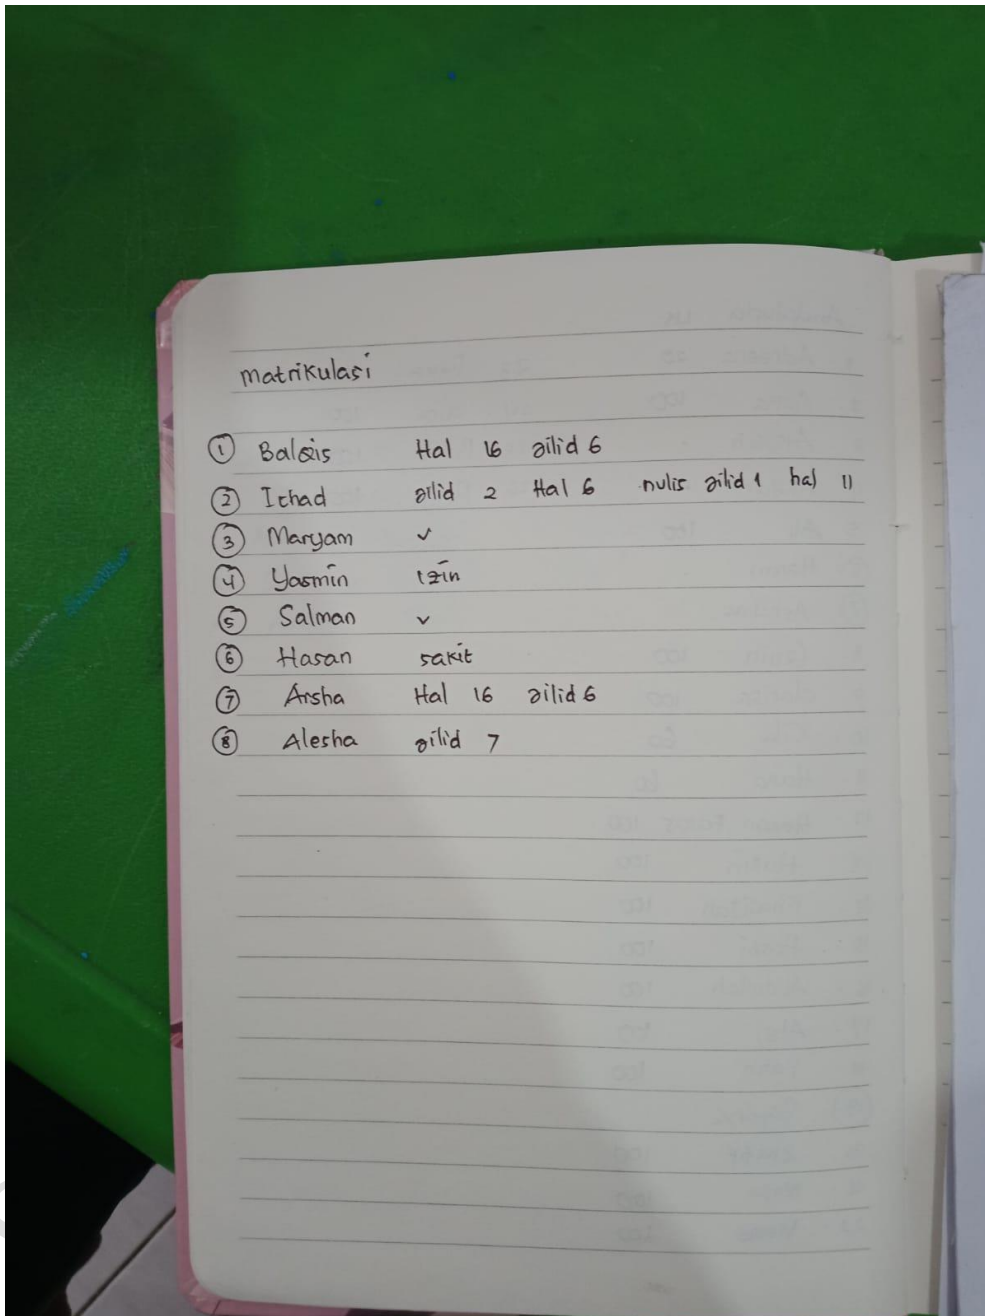 matrikulasi
① Balqis Hal 16 jilid 6
② Ichad jilid 2 Hal 6 nulis jilid 1 hal 11
③ Maryam ✓
④ Yasmin izin
⑤ Salman ✓
⑥ Hasan sakit
⑦ Arsha Hal 16 jilid 6
⑧ Alesha jilid 7